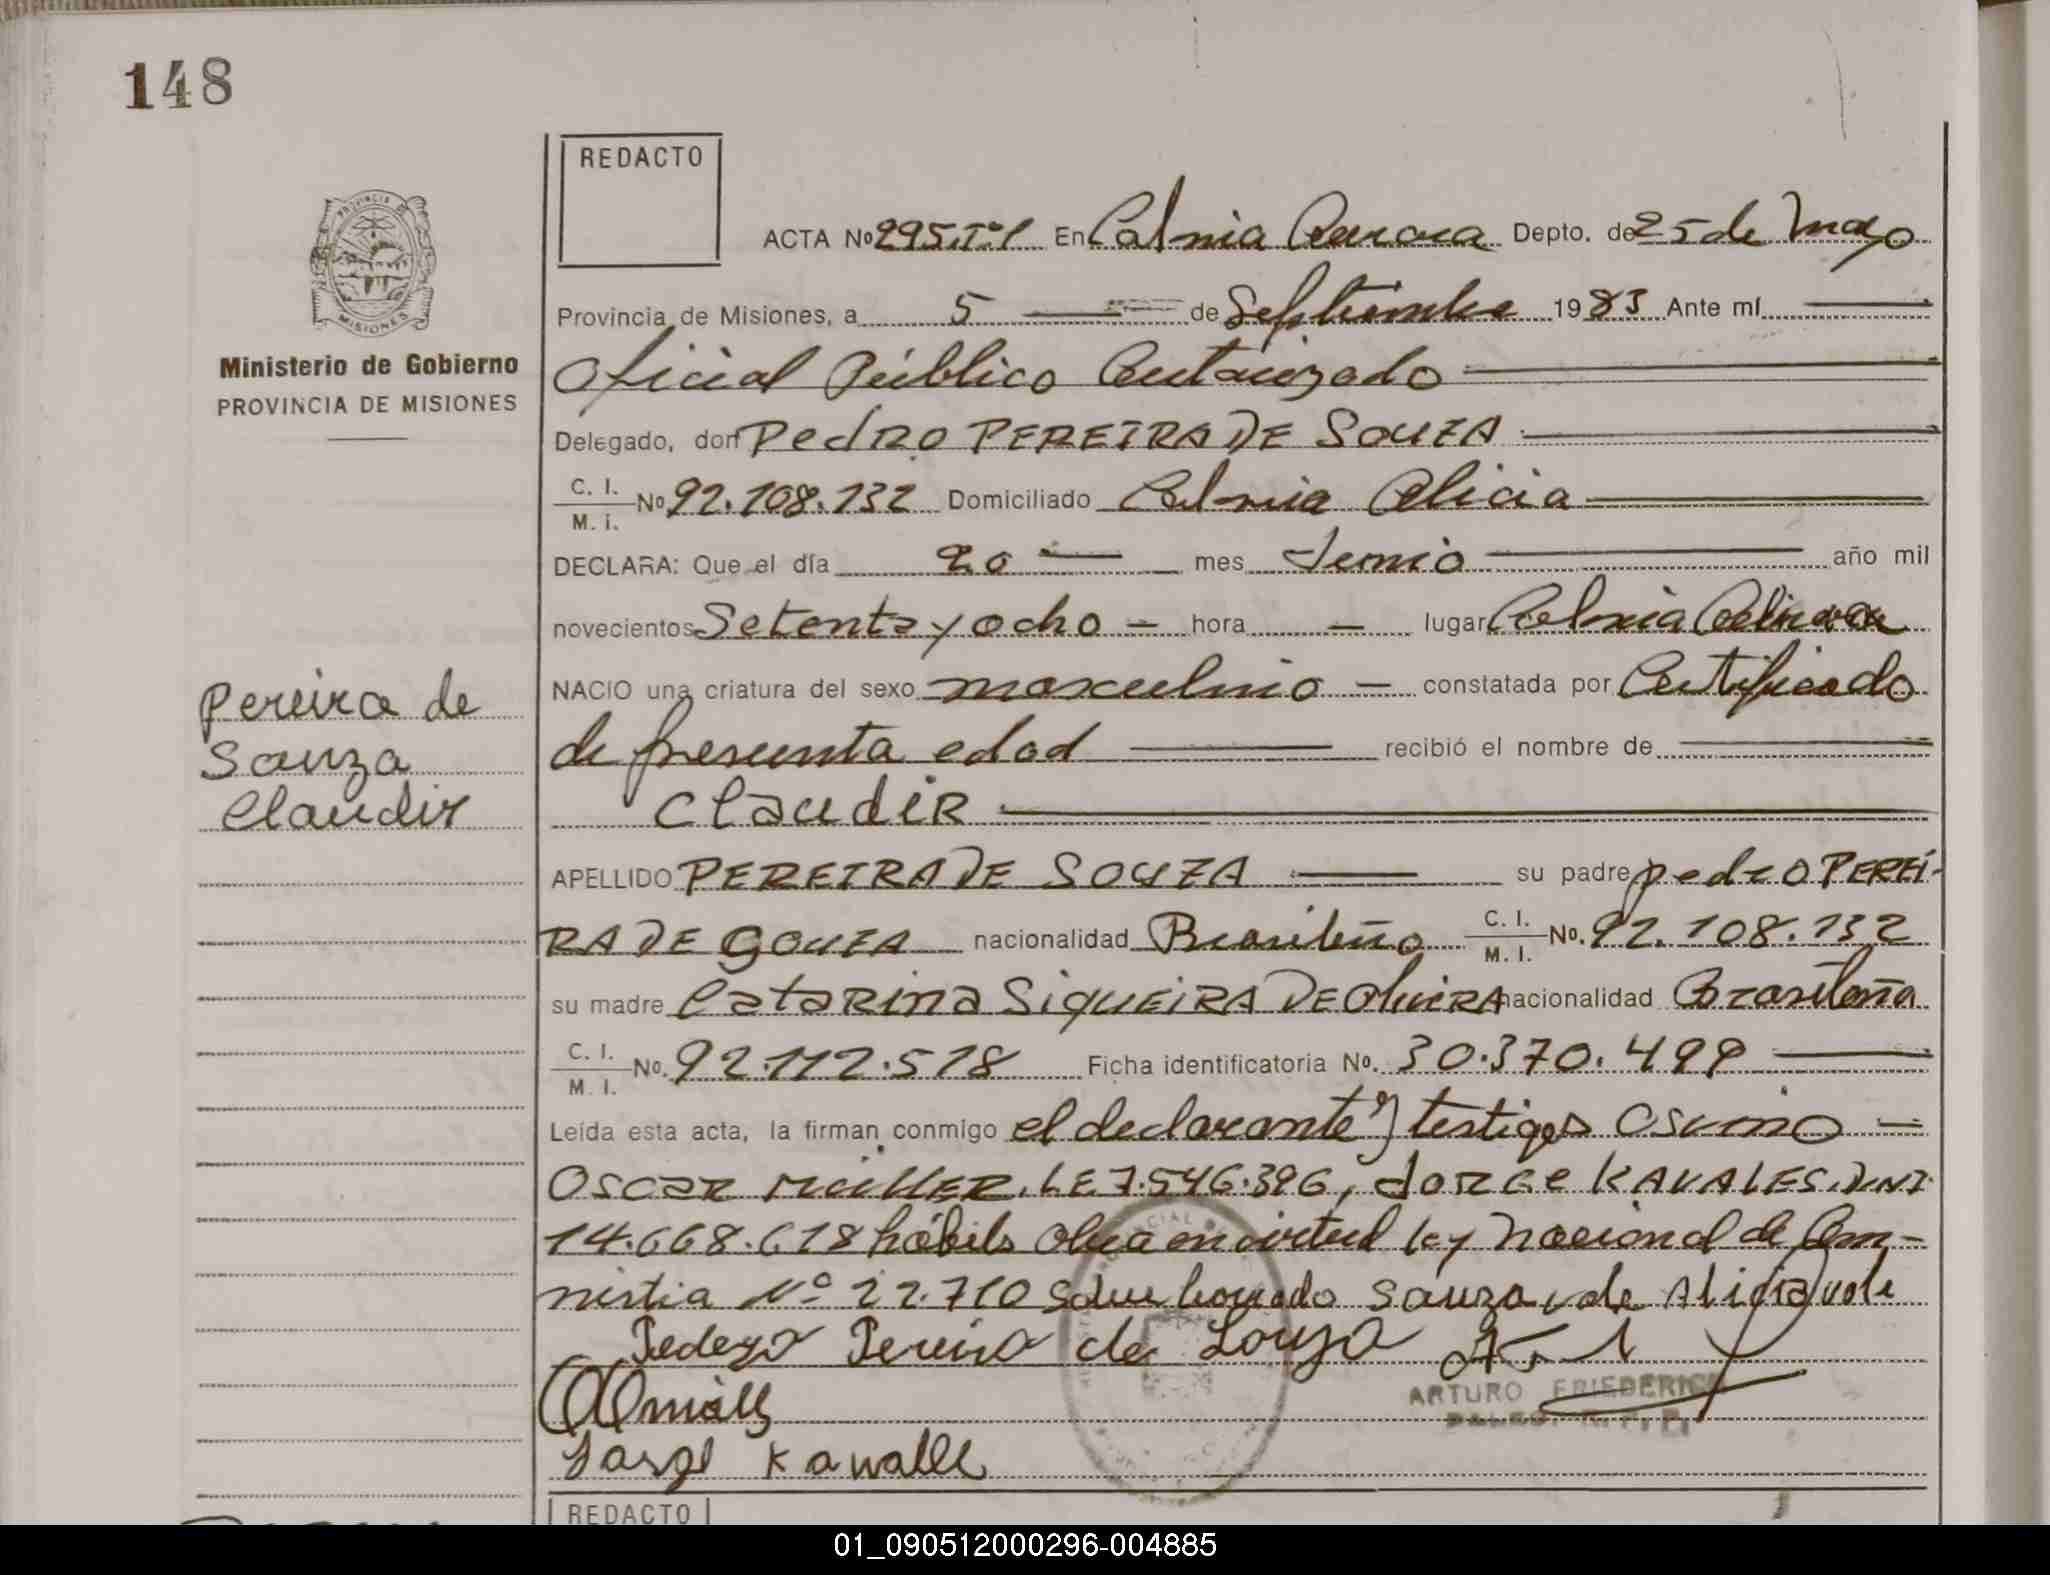 148
REDACTO
ACTA No 295.Tº1 En Colonia Aurora Depto. de 25 de Mayo
PROVINCIA DE
MISIONES
Provincia de Misiones, a 5 de Septiembre 1983 Ante mí
Ministerio de Gobierno
PROVINCIA DE MISIONES
Oficial Público Autorizado
Delegado, don Pedro PEREIRA DE SOUZA
C. I. M. I. No 92.108.132 Domiciliado Colonia Alicia
DECLARA: Que el día 20 mes Junio año mil
novecientos Setenta y ocho – hora – lugar Colonia
NACIO una criatura del sexo masculino – constatada por Certificado
Pereira de
Souza
Claudir
de presunta edad recibió el nombre de
Claudir
APELLIDO PEREIRA DE SOUZA su padre pedro PEREI-
RA DE SOUZA nacionalidad Brasileño C. I. M. I. No. 92.108.132
su madre Catarina SIQUEIRA DE Oliveira nacionalidad Brasileña
C. I. M. I. No. 92.112.518 Ficha identificatoria No. 30.370.499
Leída esta acta, la firman conmigo el declarante y testigos Osvino –
Oscar Müller, LE.7.546.396, Jorge KAVALES.DNI
14.668.618 hábiles Obra en virtud ley Nacional de Am-
nistia Nº 22.710 Sobre borrado Souza, vale Alicia vale
Pedro Pereira de Souza
ARTURO FRIEDERICH
Jorge Kawalle
REDACTO
01_090512000296-004885